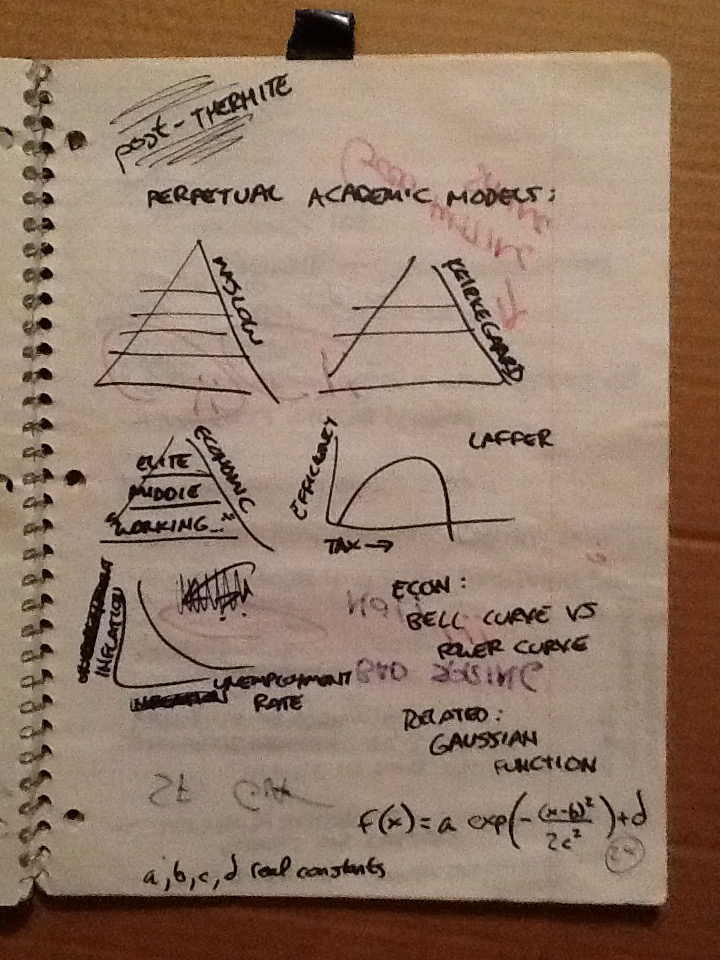 post-THERMITE
PERPETUAL ACADEMIC MODELS:
MASLOW
KEIRKEGAARD
ELITE
MIDDLE
"WORKING..."
ECONOMIC
EFFICIENCY
TAX →
LAFFER
INFLATION
UNEMPLOYMENT
RATE
ECON:
BELL CURVE VS
POWER CURVE
RELATED:
GAUSSIAN
FUNCTION
f(x) = a exp(-(x-b)²/2c²)+d
a, b, c, d real constants